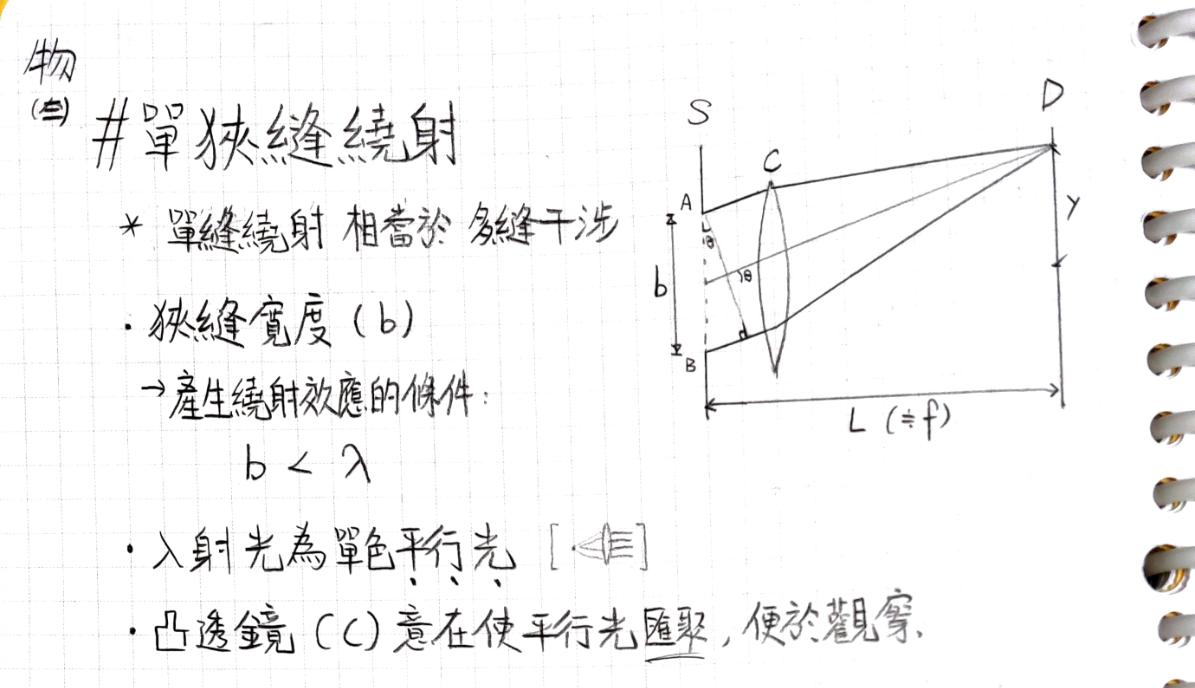 物
(三)
#單狹縫繞射
* 單縫繞射 相當於 多縫干涉
· 狹縫寬度 (b)
→產生繞射效應的條件:
b < λ
· 入射光為單色平行光 [ ]
· 凸透鏡 (C) 意在使平行光匯聚, 便於觀察.
S
D
C
A
θ
θ
y
b
d
B
L (≑f)